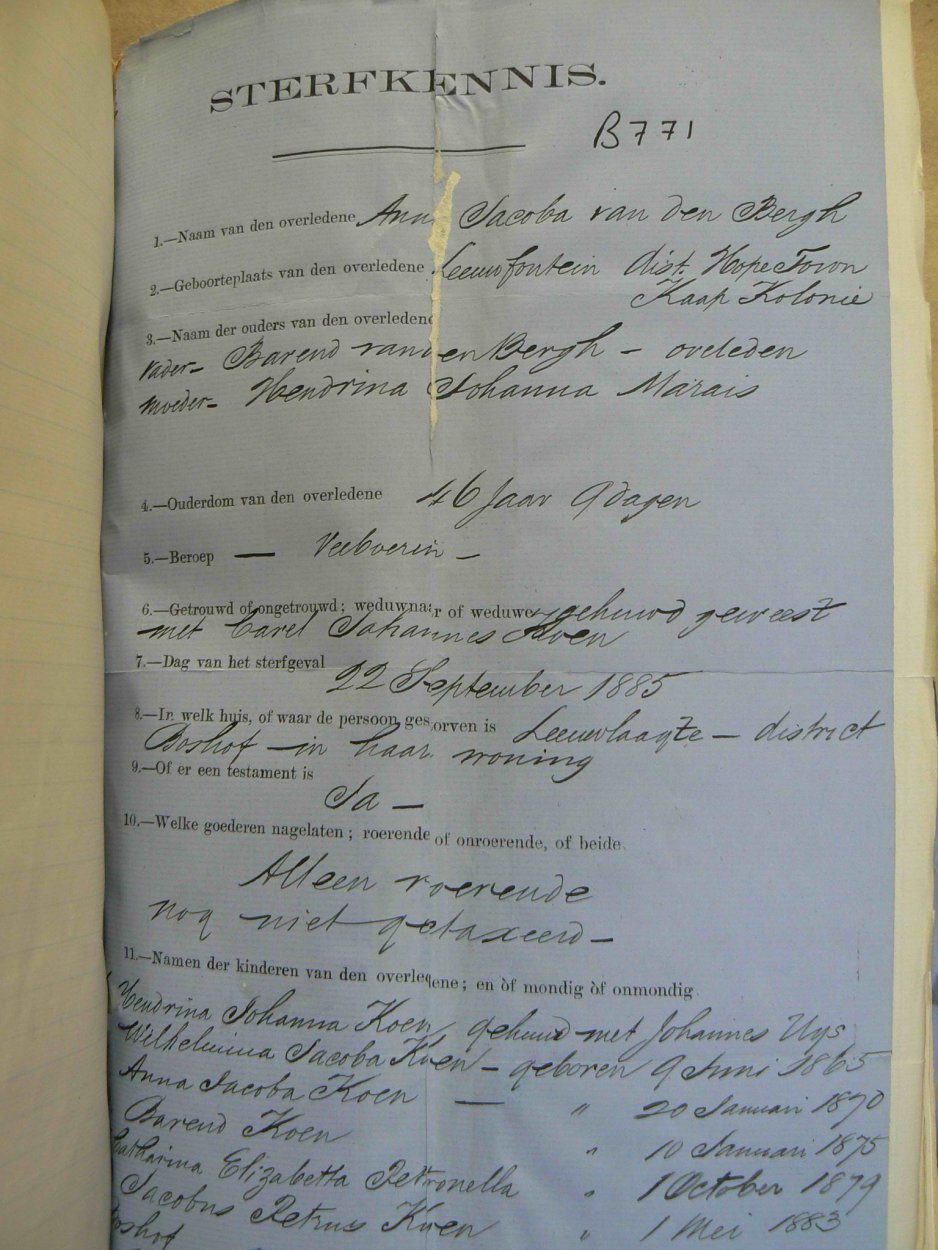 STERFKENNIS.
B771
1.—Naam van den overledene Anna Jacoba van den Bergh
2.—Geboorteplaats van den overledene Leeuwfontein dist. Hope Town
Kaap Kolonie
3.—Naam der ouders van den overledene
Vader— Barend van den Bergh — oveleden
Moeder— Hendrina Johanna Marais
4.—Ouderdom van den overledene 46 Jaar 9 dagen
5.—Beroep — Veeboerin —
6.—Getrouwd of ongetrouwd; weduwnaar of weduwe gehuwd geweest
met Carel Johannes Koen
7.—Dag van het sterfgeval 22 September 1885
8.—In welk huis, of waar de persoon gestorven is Leeuwlaagte — district
Boshof — in haar woning
9.—Of er een testament is
Ja —
10.—Welke goederen nagelaten; roerende of onroerende, of beide.
Alleen roerende
nog niet getaxeerd —
11.—Namen der kinderen van den overledene; en òf mondig òf onmondig.
Hendrina Johanna Koen, gehuwd met Johannes Uys
Wilhelmina Jacoba Koen — geboren 9 Juni 1865
Anna Jacoba Koen — " 20 Januari 1870
Barend Koen " 10 Januari 1875
Catharina Elizabetta Petronella " 1 October 1879
Jacobus Petrus Koen " 1 Mei 1883
Boshof